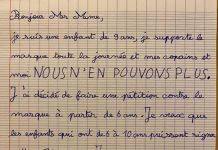 Bonjour Mme Mme,
je suis une enfant de 9 ans, je supporte le
masque toute la journée et mes copains et
moi NOUS N'EN POUVONS PLUS.
J'ai décidé de faire une pétition contre le
masque à partir de 6 ans. Je veux que
les enfants qui ont de 6 à 10 ans puissent signer